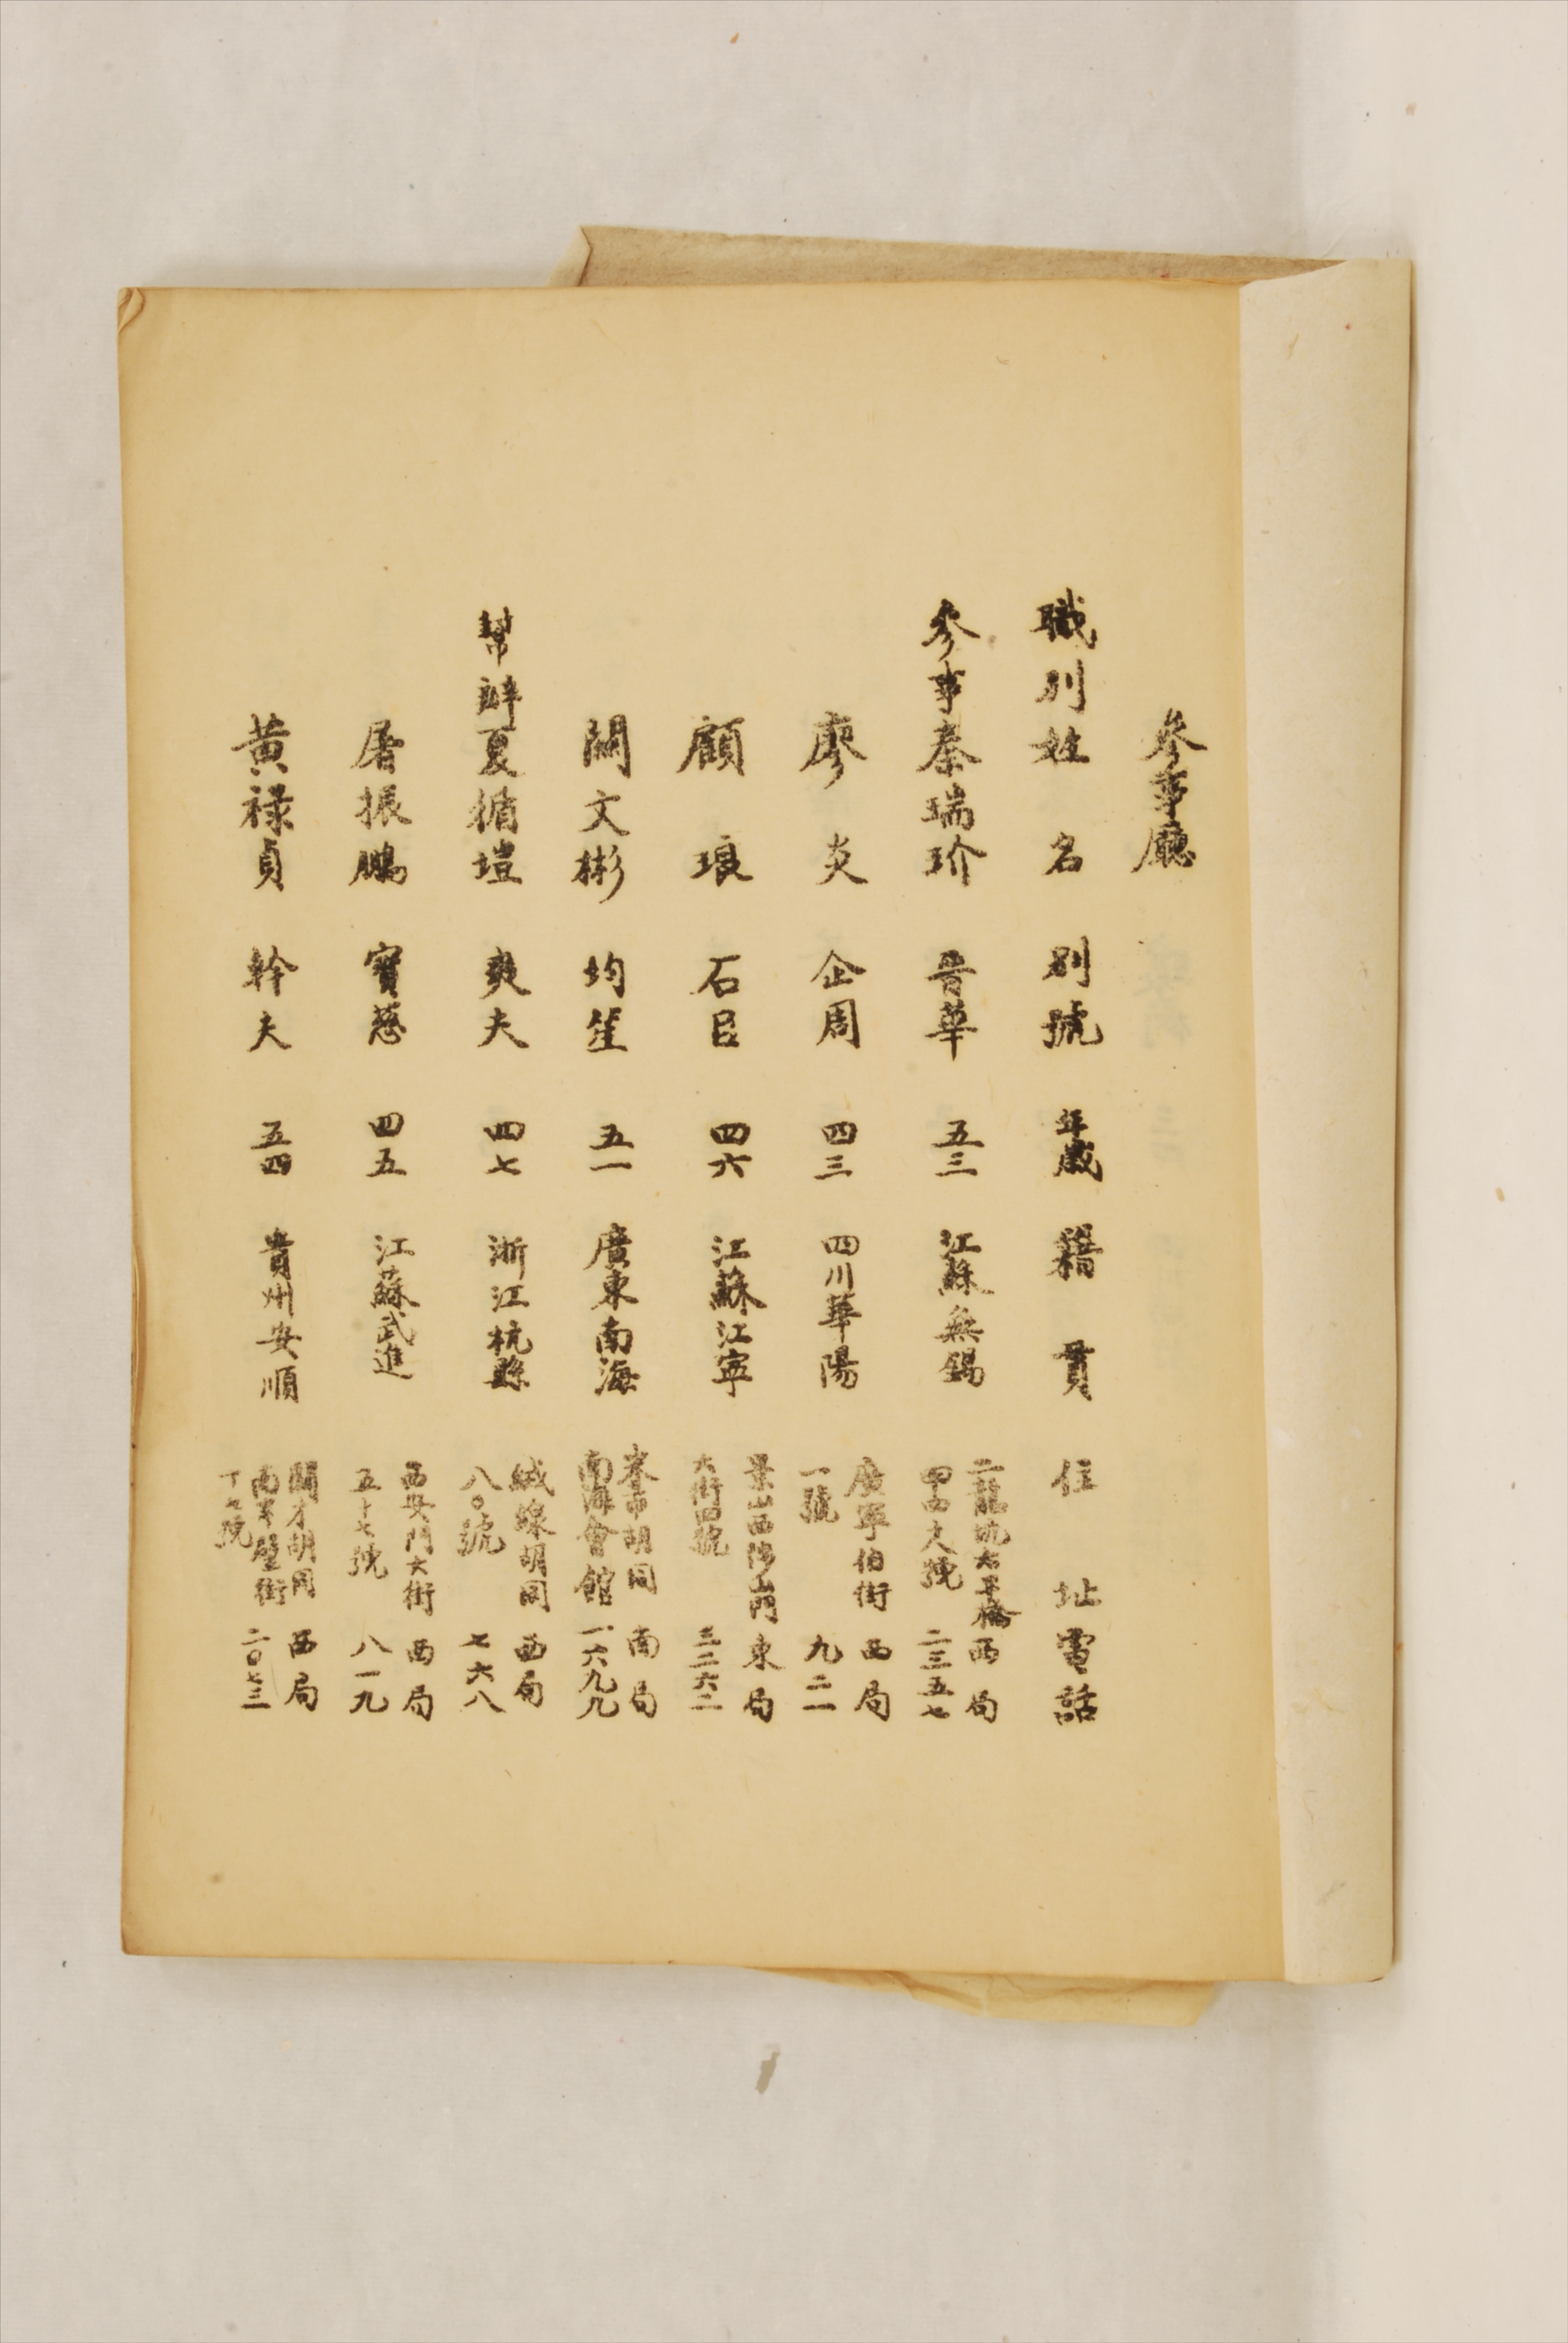 參事廳
職別姓名 別號 年歲 籍貫 住址電話
參事秦瑞玠 晉華 五三 江蘇無錫 二龍坑太平橋 西局
甲西大號 二三五七
廖炎 企周 四三 四川華陽 廣寧伯街 西局
一號 九二一
顧琅 石臣 四六 江蘇江寧 景山西陟山門 東局
大街四號 三二六二
關文彬 均笙 五一 廣東南海 米市胡同 南局
南海會館 一六九九
幫辦夏循塏 爽夫 四七 浙江杭縣 絨線胡同 西局
八〇號 七六八
屠振鵬 寶慈 四五 江蘇武進 西安門大街 西局
五十七號 八一九
黃祿貞 幹夫 五四 貴州安順 闢才胡同 西局
南半壁街 二〇七三
丁七號